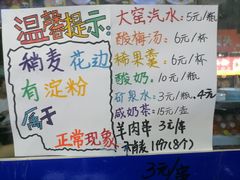 温馨提示:
稍麦花边
有淀粉
属于
正常现象
大窑汽水:5元/瓶
酸梅汤:6元/杯
稀果羹:6元/杯
酸奶:10元/瓶
矿泉水:3元/瓶、4元
咸奶茶:15元/壶
羊肉串 3元/串
稍麦 1份(8个)
3元/串